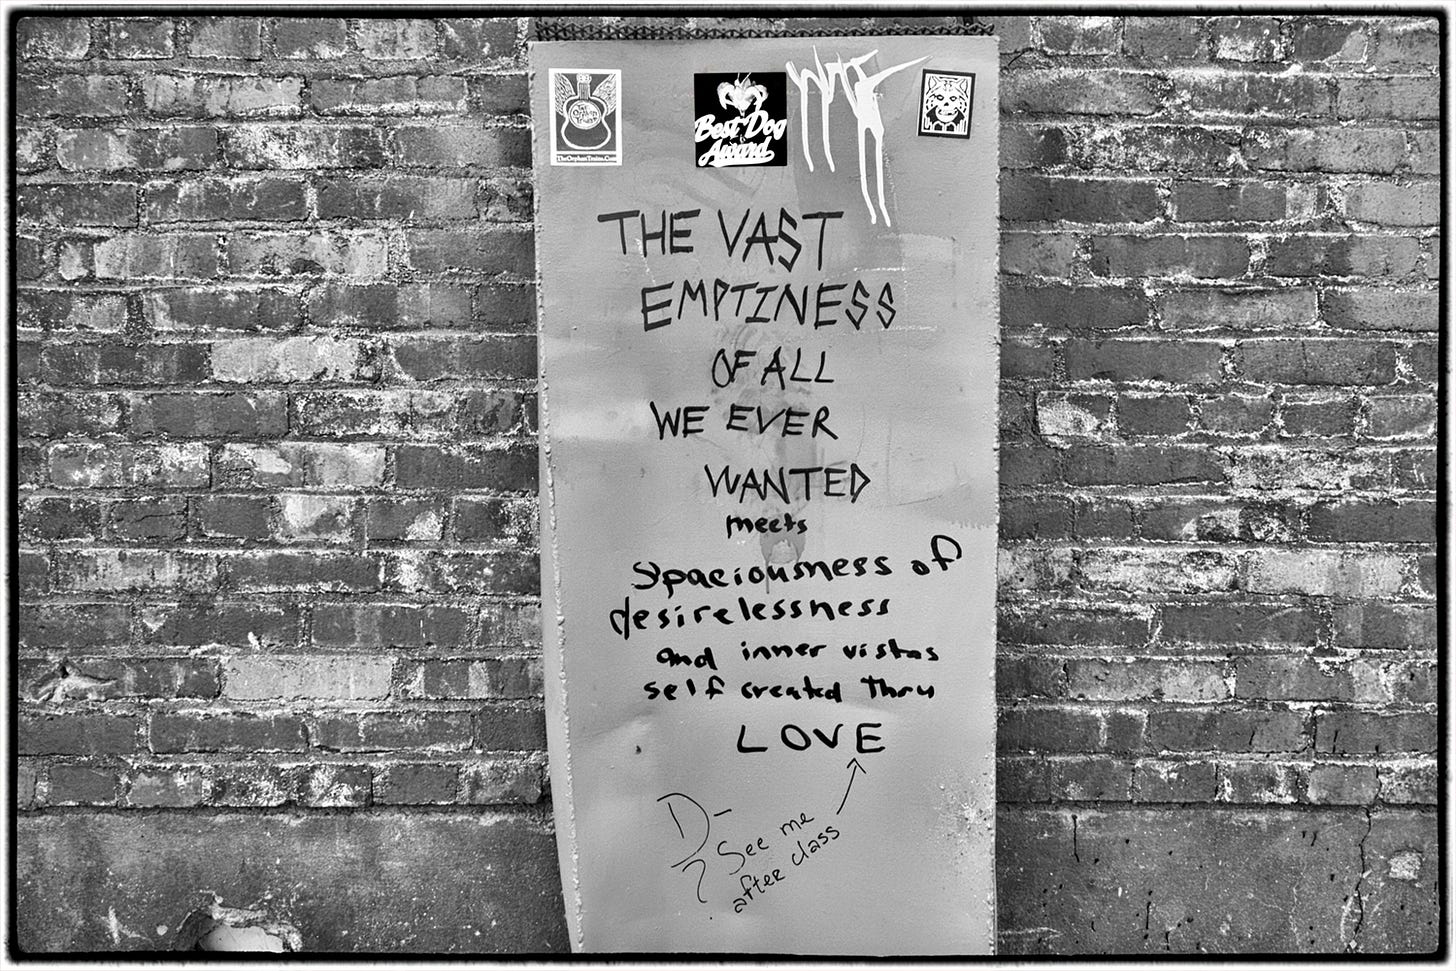 The Orphan Trains
TheOrphanTrains.Com
Best Dog
Award
THE VAST
EMPTINESS
OF ALL
WE EVER
WANTED
meets
Spaciousness of
desirelessness
and inner vistas
self created thru
LOVE
D-
? See me
after class